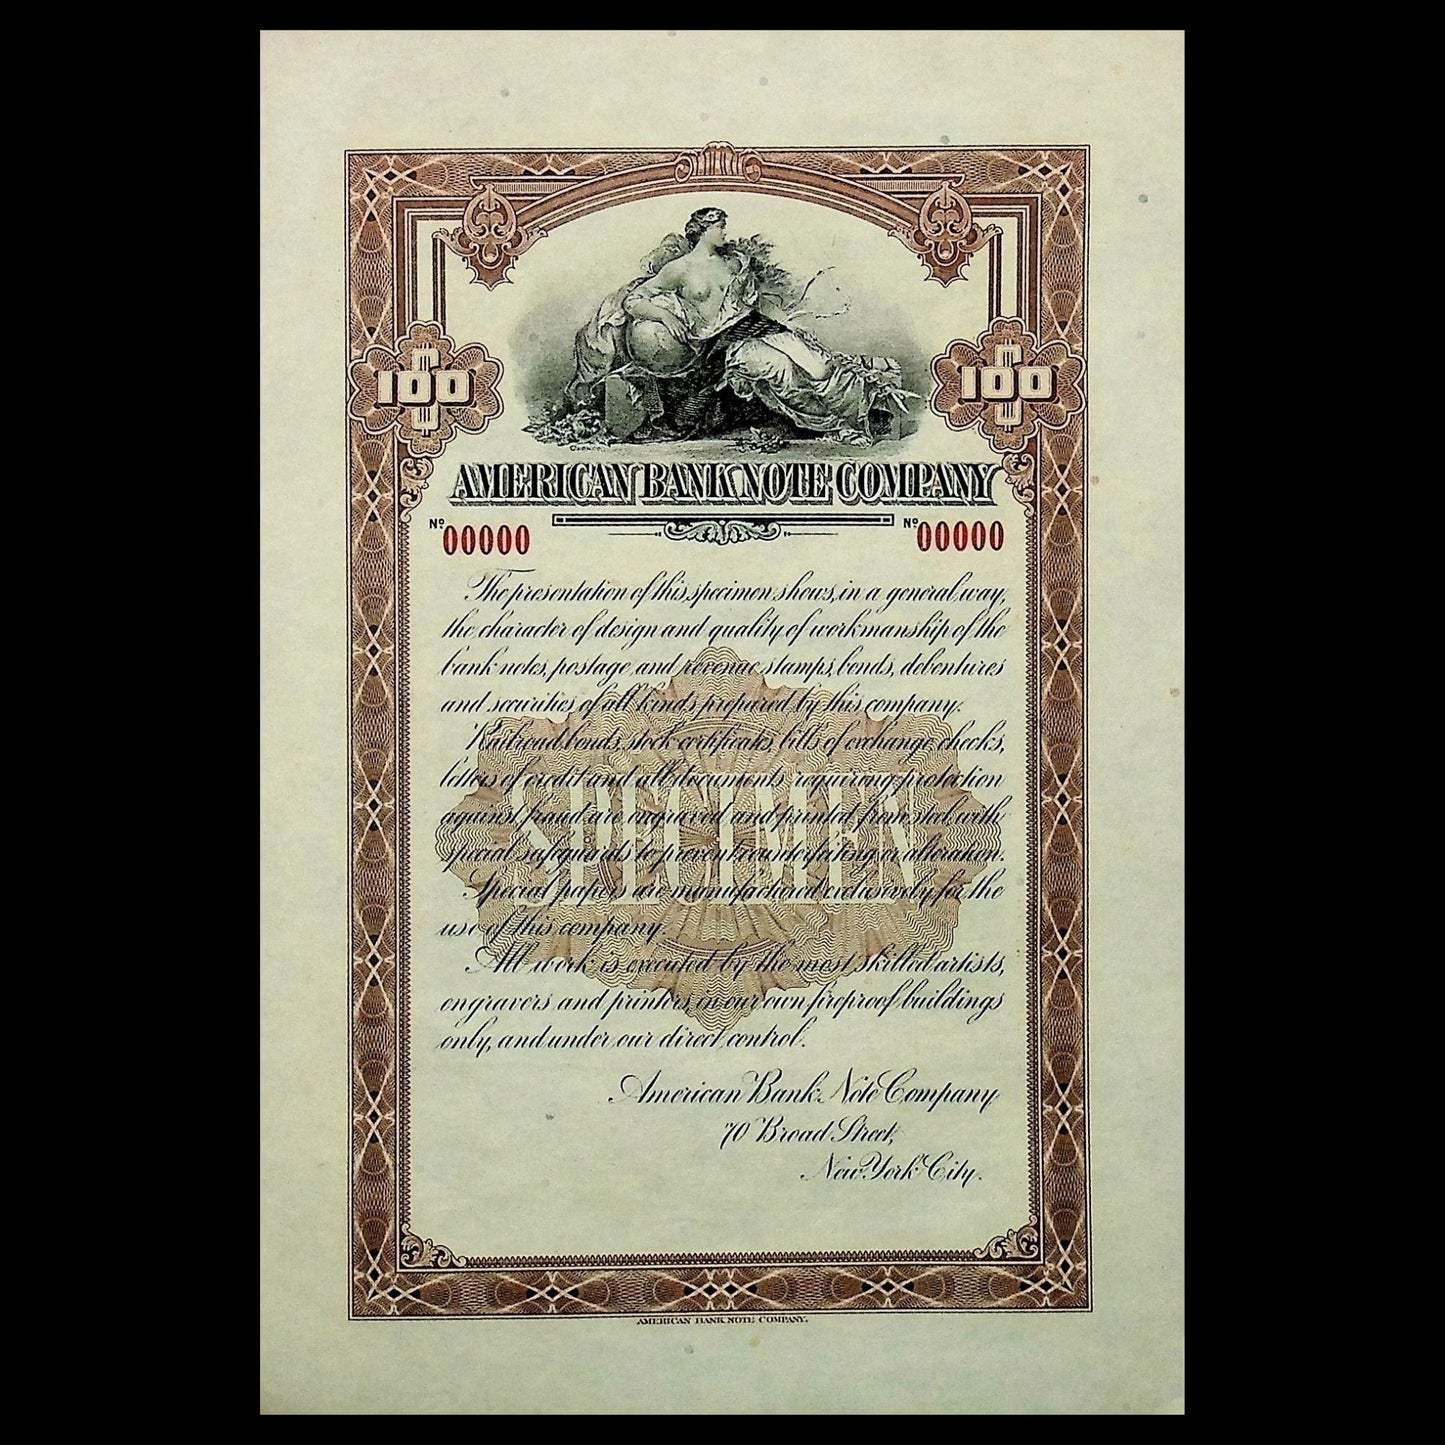 $100 $100
AMERICAN BANK NOTE COMPANY
Nº 00000 Nº 00000
The presentation of this specimen shows, in a general way,
the character of design and quality of workmanship of the
bank notes, postage and revenue stamps, bonds, debentures
and securities of all kinds prepared by this company.
Railroad bonds, stock certificates, bills of exchange, checks,
letters of credit and all documents requiring protection
against fraud are engraved and printed from steel with
special safeguards to prevent counterfeiting or alteration.
SPECIMEN
Special papers are manufactured exclusively for the
use of this company.
All work is executed by the most skilled artists,
engravers and printers, in our own fireproof buildings
only, and under our direct control.
American Bank Note Company
70 Broad Street,
New York City.
AMERICAN BANK NOTE COMPANY.